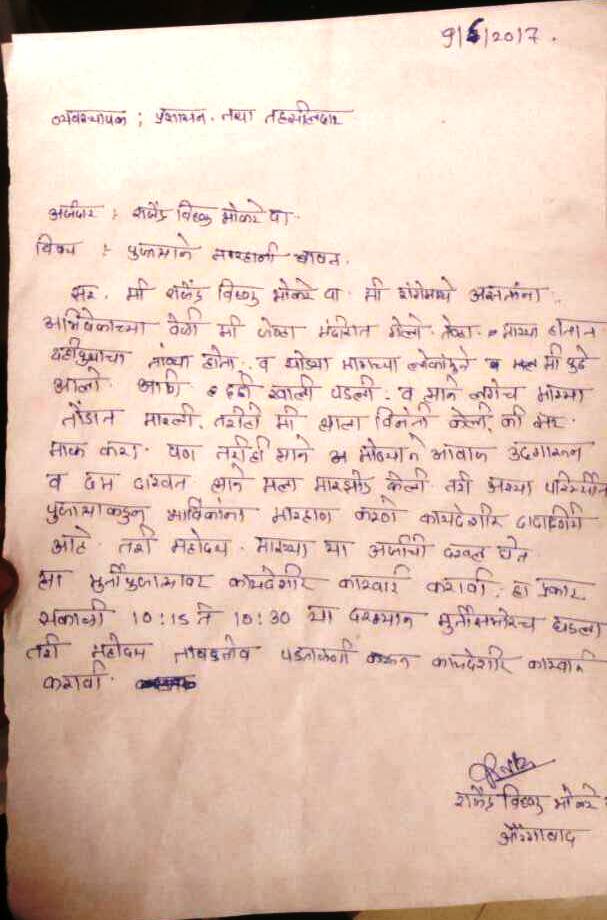 9/6/2017.
व्यवस्थापक : प्रशासन. तथा तहसीलदार
अर्जदार :- राजेंद्र विष्णु मोकरे पा.
विषय :- पुजाऱ्याने मारहानी बाबत.
सर. मी राजेंद्र विष्णु मोकरे पा. मी रांगेमध्ये असतांना.
अभिषेकाच्या वेळी मी जेव्हा मंदिरात गेलो. तेव्हा माझ्या हातात
दहीदुधाचा तांब्या होता. व थोड्या मागच्या लोकांमुळे मी पुढे
आलो. आणि दही खाली पडली. व त्याने लगेच माझ्या
तोंडात मारली. तरीही मी त्याला विनंती केली. की सर.
माफ करा. पण तरीही त्याने मोठ्याने आवाज उदगारून
व दम दाखवत त्याने मला मारझोड केली तरी अश्या परिस्थीत
पुजाऱ्याकडुन भाविकांना मारहाण करणे कायदेशीर दादागिरी
आहे. तरी महोदय. माझ्या या अर्जाची दखल घेत
ह्या मुर्तीपुजाऱ्यावर कायदेशीर कारवाई करावी. हा प्रकार
सकाळी 10:15 ते 10:30 या दरम्यान मुर्तीसमोरच घडला
तरी महोदय ताबडतोब पडताळणी करून कायदेशीर कारवाई
करावी.
राजेंद्र विष्णु मोकरे
औरंगाबाद